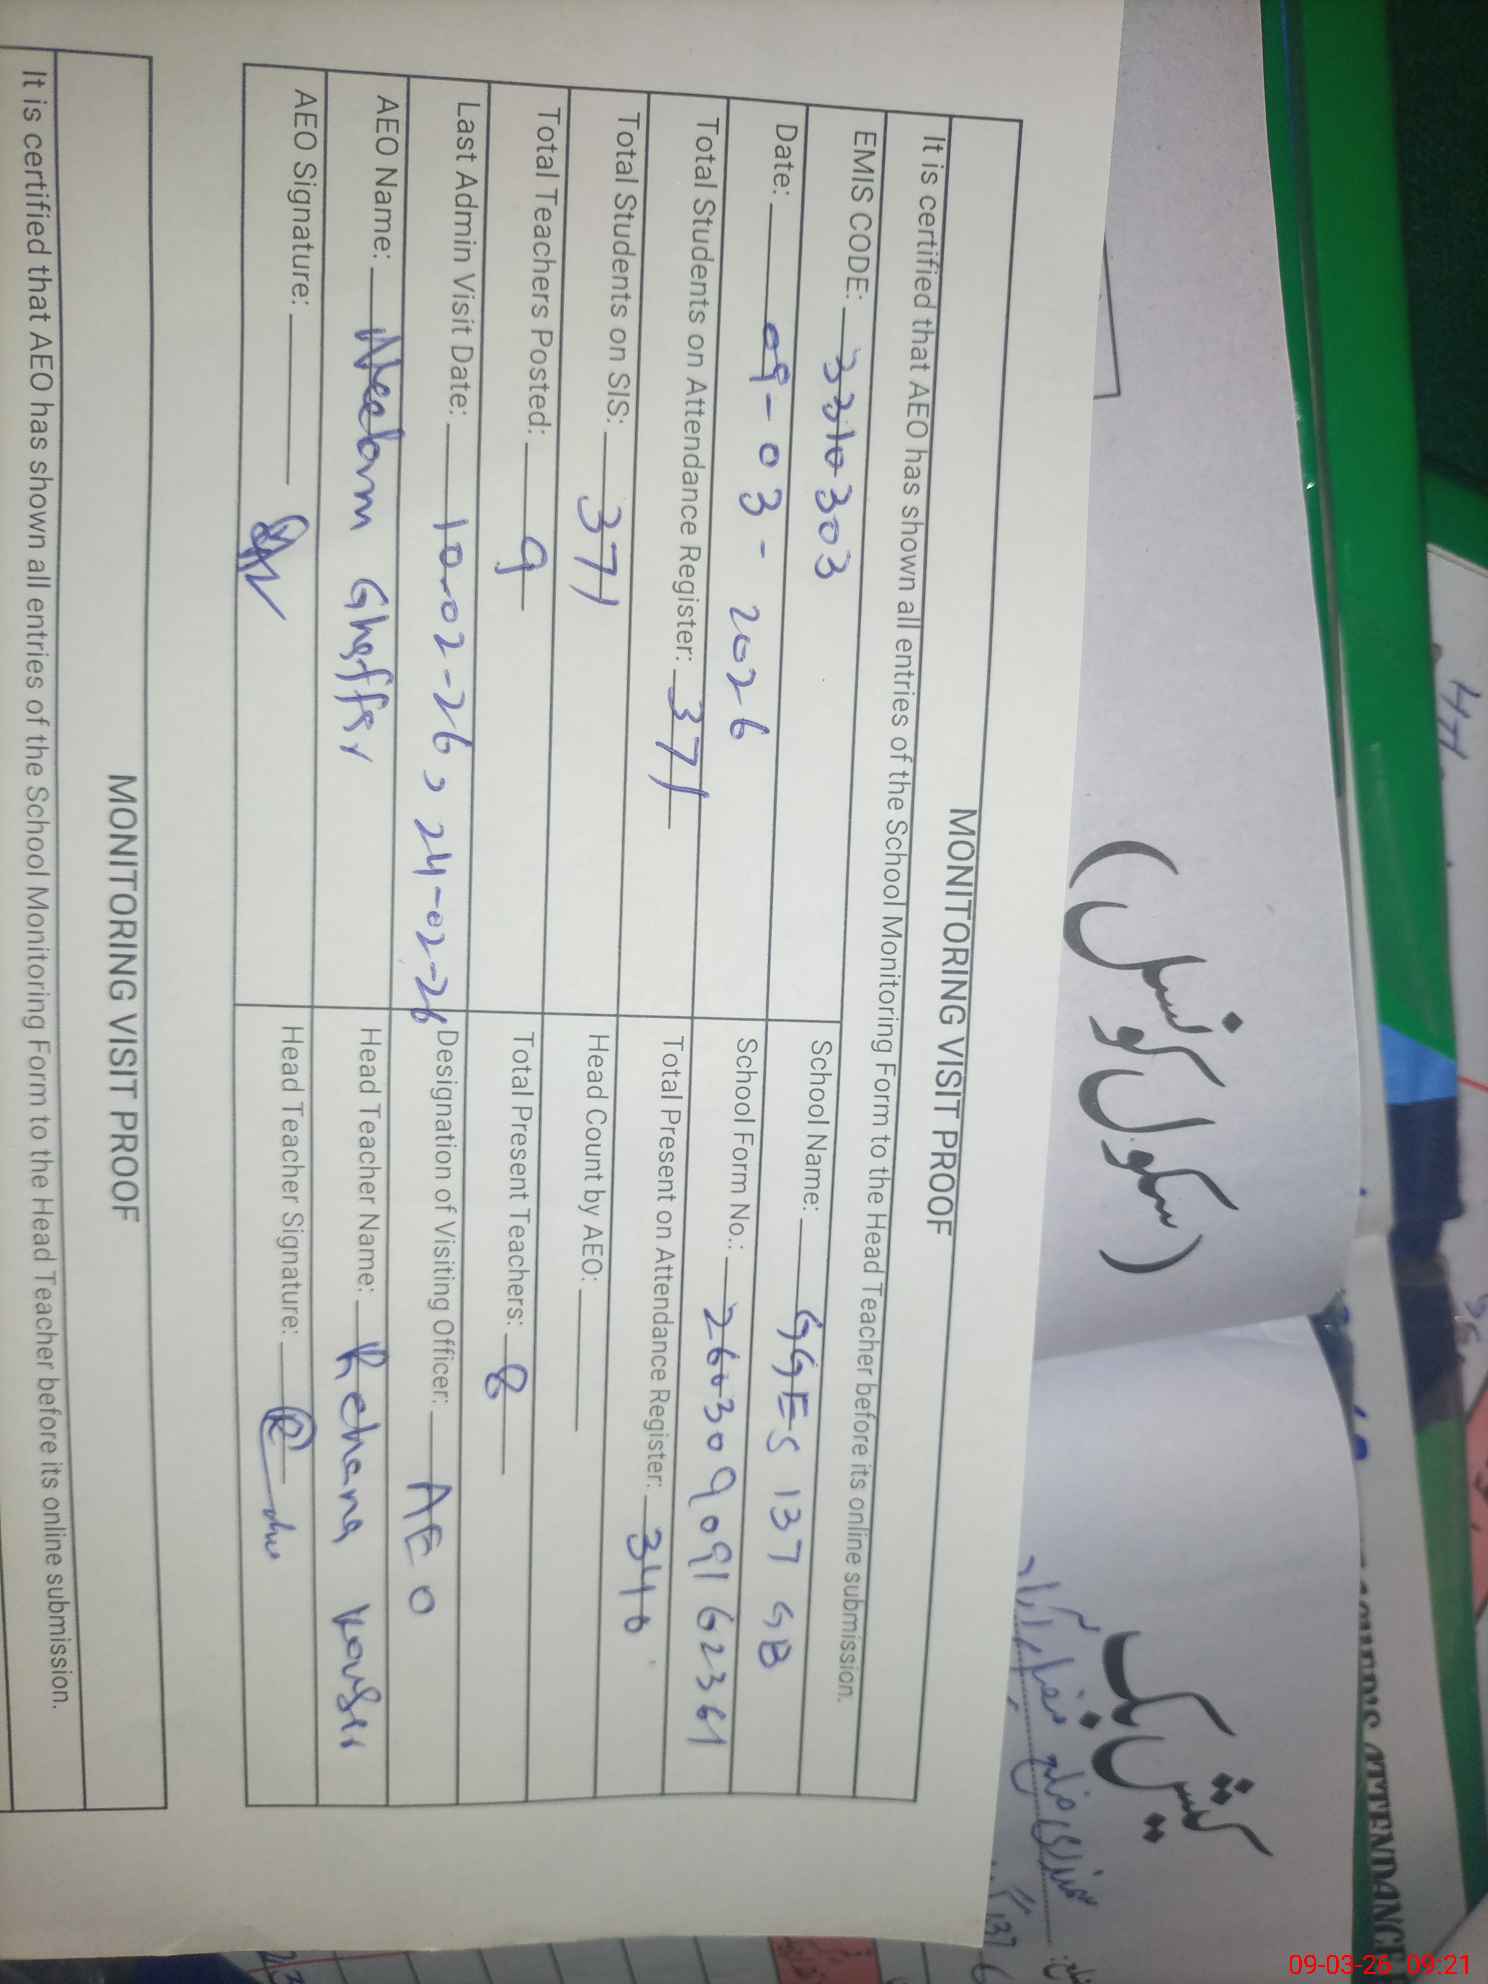 MONITORING VISIT PROOF
It is certified that AEO has shown all entries of the School Monitoring Form to the Head Teacher before its online submission.
EMIS CODE: 3310303 School Name: GGES 137 GB
Date: 09-03-2026 School Form No.: 26030909162361
Total Students on Attendance Register: 371 Total Present on Attendance Register: 340
Total Students on SIS: 371 Head Count by AEO:
Total Teachers Posted: 9 Total Present Teachers: 8
Last Admin Visit Date: 10-02-26, 24-02-26 Designation of Visiting Officer: AEO
AEO Name: Neelam Ghaffar Head Teacher Name: Rehana Kousar
AEO Signature: Head Teacher Signature:
MONITORING VISIT PROOF
It is certified that AEO has shown all entries of the School Monitoring Form to the Head Teacher before its online submission.
کیش بک
(سکول کونسل)
ATTENDANCE
09-03-26 09:21